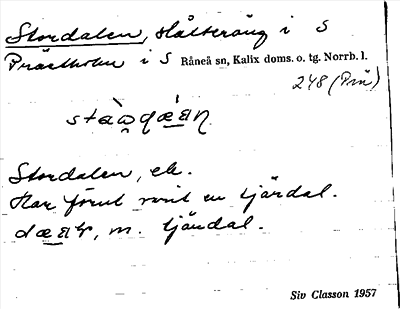 Stordalen, slåtteräng i S
Prästholm i S Råneå sn, Kalix doms. o. tg. Norrb. l.
248 (Prä)
Stordalen, ek.
Har förut varit en tjärdal.
m. tjärdal.
Siv Classon 1957